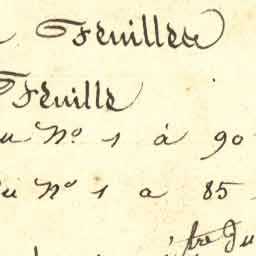 Feuillets
Feuille
Du Nº 1 à 90
Du Nº 1 a 85